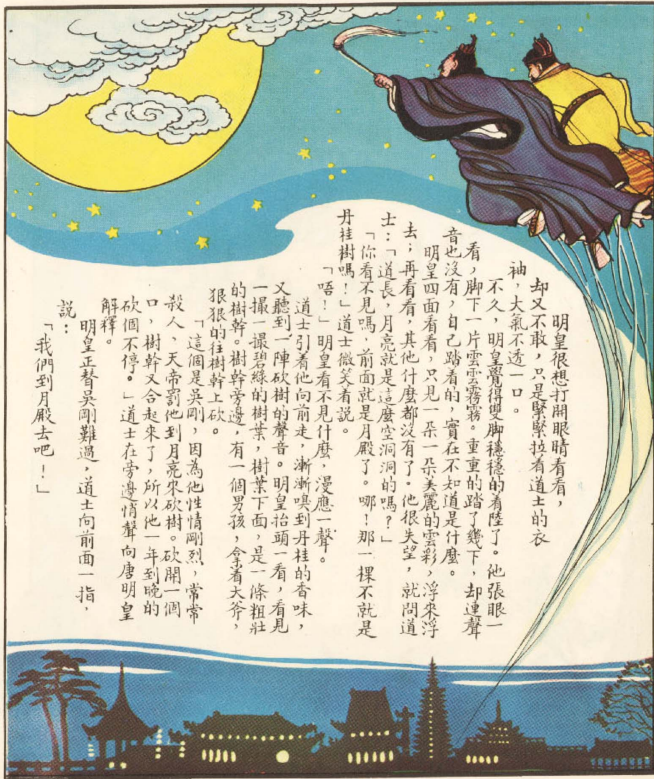 明皇很想打開眼睛看看,
却又不敢,只是緊緊拉着道士的衣
袖,大氣不透一口。
不久,明皇覺得雙脚穩穩的着陸了。他張眼一
看,脚下一片雲雲霧霧。重重的踏了幾下,却連聲
音也沒有,自己踏着的,實在不知道是什麼。
明皇四面看看,只見一朵一朵美麗的雲彩,浮來浮
去;再看看,其他什麼都沒有了。他很失望,就問道
士:「道長,月亮就是這麼空洞洞的嗎?」
「你看不見嗎,前面就是月殿了。哪!那一棵不就是
丹桂樹嗎!」道士微笑着說。
「唔!」明皇看不見什麼,漫應一聲。
道士引着他向前走,漸漸嗅到丹桂的香味,
又聽到一陣砍樹的聲音。明皇抬頭一看,看見
一撮一撮碧綠的樹葉,樹葉下面,是一條粗壯
的樹幹。樹幹旁邊,有一個男孩,拿着大斧,
狠狠的往樹幹上砍。
「這個是吳剛,因為他性情剛烈,常常
殺人、天帝罰他到月亮來砍樹。砍開一個
口,樹幹又合起來了,所以他一年到晚的
砍個不停。」道士在旁邊悄聲向唐明皇
解釋。
明皇正聲吳剛難過,道士向前面一指,
說:
「我們到月殿去吧!」